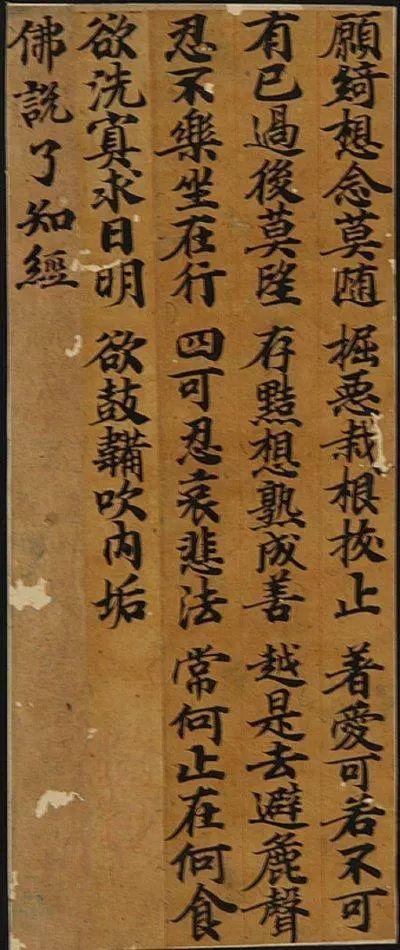 願綺想念莫随 掘惡栽根拔止 著愛可若不可
有已過後莫望 存黠想熟成善 越是去避麁聲
忍不樂坐在行 四可忍哀悲法 常何止在何食
欲洗冥求日明 欲鼓鞴吹内垢
佛說了知經